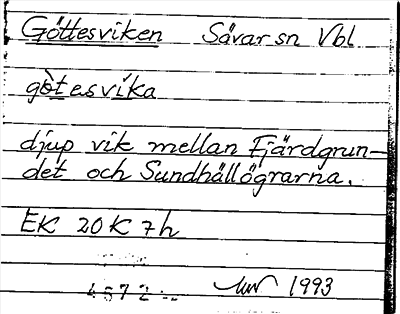 Göttesviken Sävar sn Vbl
gòtesvíka
djup vik mellan Fjärdgrun-
det och Sundhällögrarna.
EK 20K 7h
4572 1993